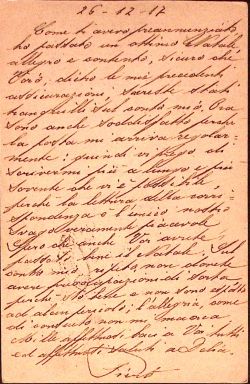 26-12-17
Come ti avevo preannunziato,
ho passato un ottimo Natale,
allegro e contento, sicuro che
Voi, dietro le mie precedenti
assicurazioni, sareste stati
tranquilli sul conto mio. Ora
sono anche soddisfatto perché
la posta mi arriva regolar-
mente; quindi vi prego di
scrivermi più a lungo e più
sovente che vi è possibile,
perché la lettura della corri-
spondenza è l'unico nostro
svago veramente piacevole
Spero che anche Voi avrete
passato bene il Natale. Sul
conto mio, ripeto, non dovete
avere preoccupazioni di sorta
perché sto bene e non sono esposto
ad alcun pericolo; l'allegria, come
di consueto non mi manca
Mille affettuosi baci a Voi tutti
ed affettuosi saluti a Delia.